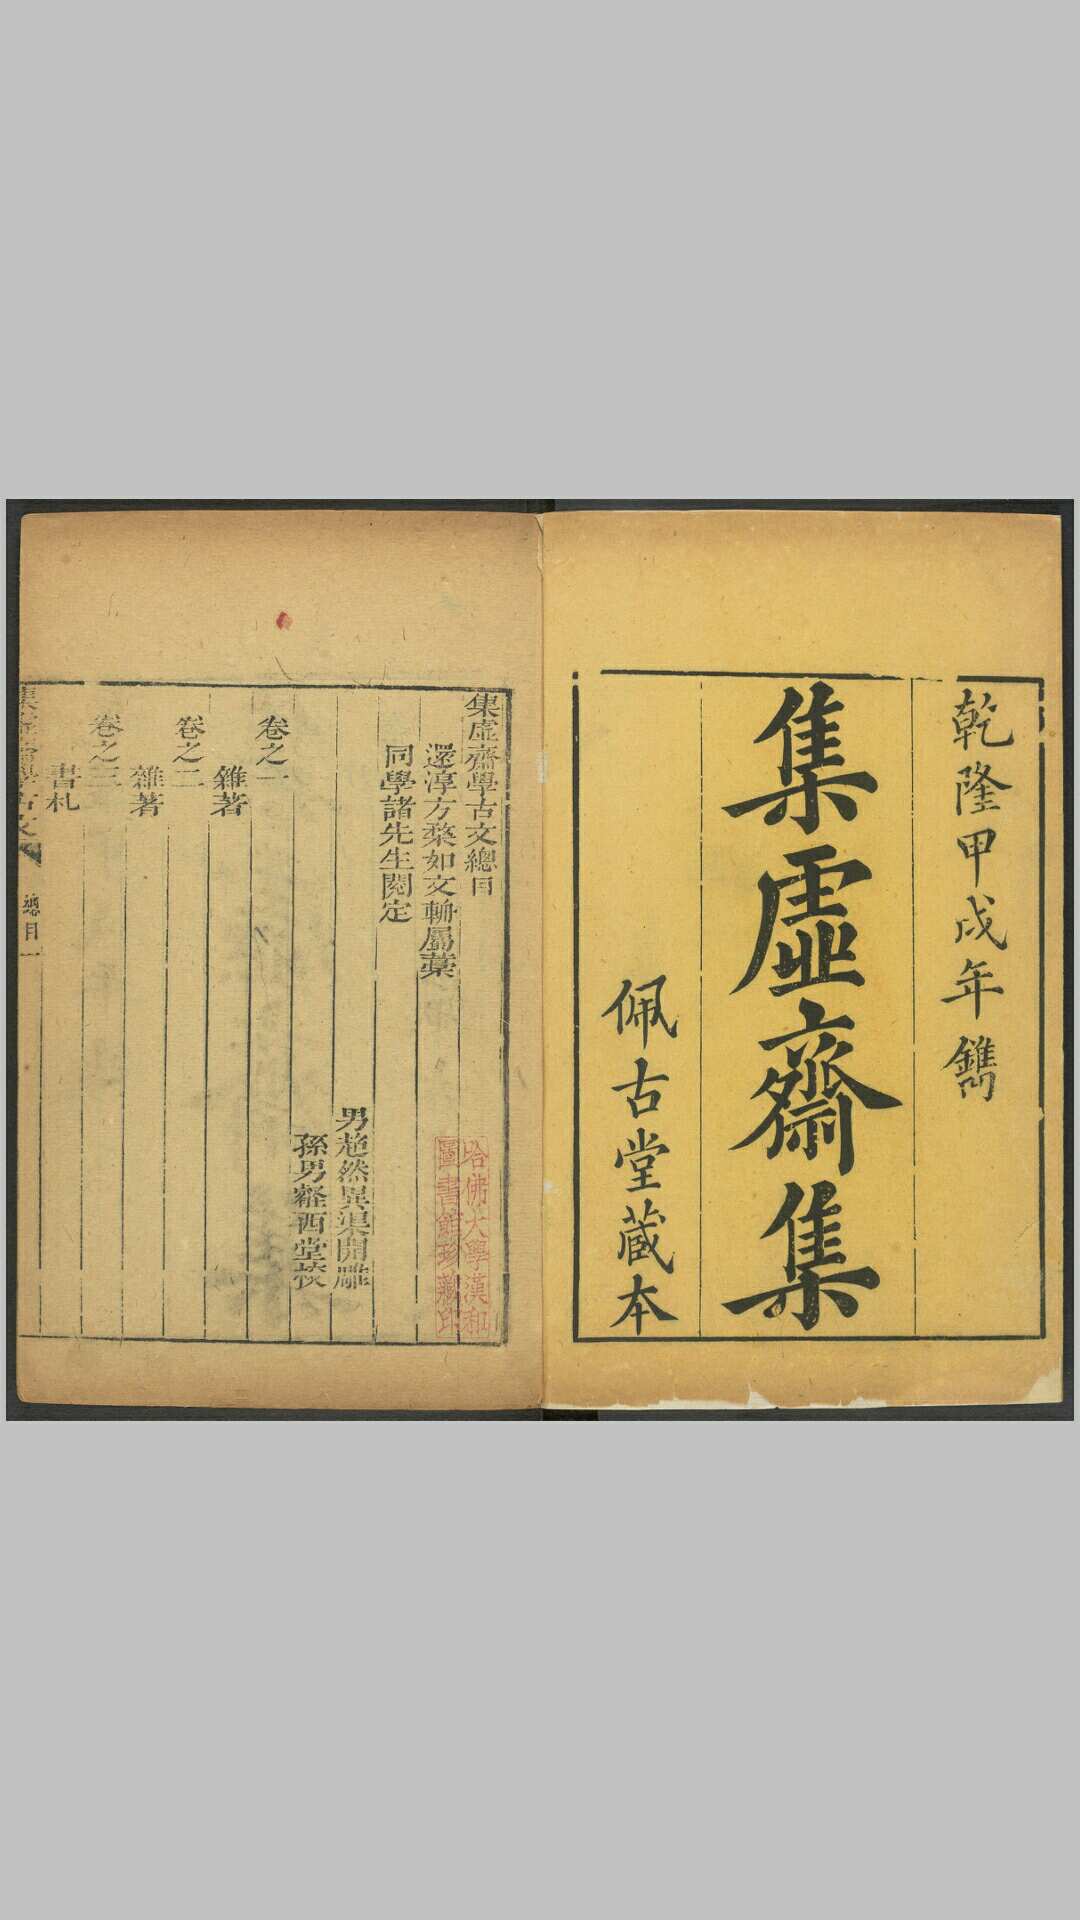 乾隆甲戌年鐫
集虛齋集
佩古堂藏本
集虛齋學古文總目
還淳方楘如文輈屬藁
同學諸先生閱定
男超然異渠開雕
孫男 西堂校
卷之一
雜著
卷之二
雜著
卷之三
書札
集虛齋學古文
總目 一
哈佛大學漢和
圖書館珍藏印